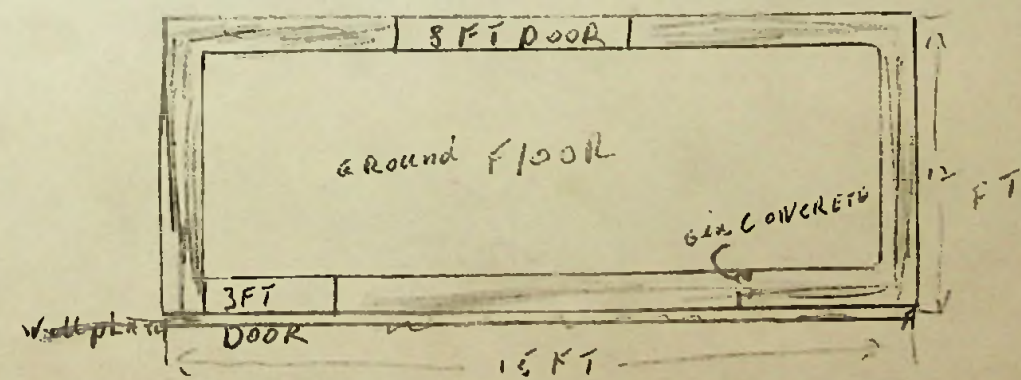 8 FT DOOR
GROUND FlOOR
6in CONCRETE
12
FT
3FT
DOOR
Wall plATE
15 FT